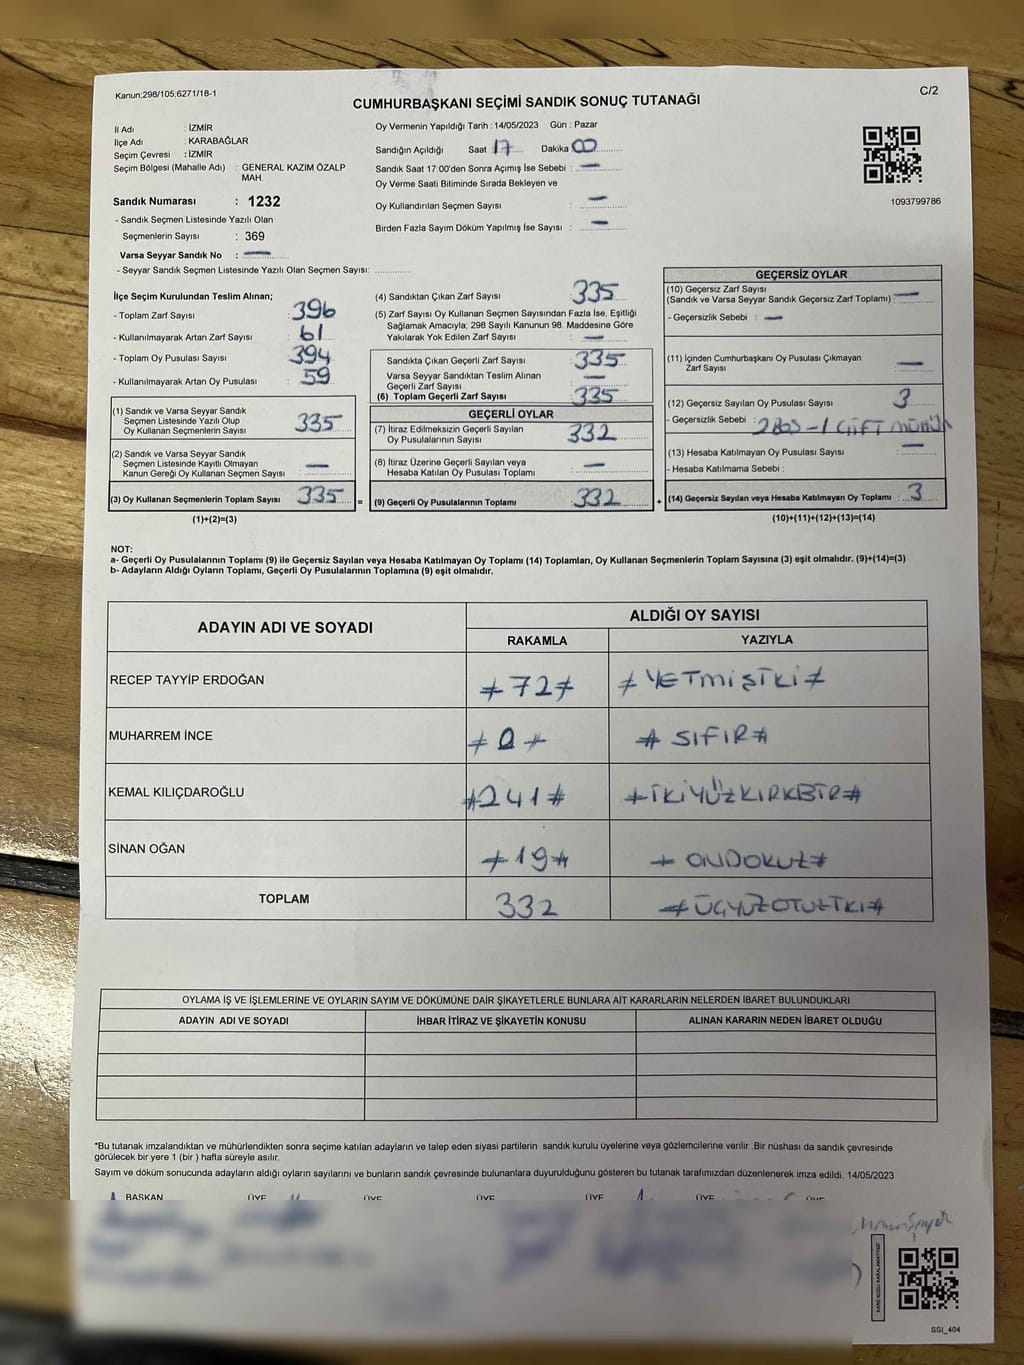 Kanun;298/105;6271/18-1
C/2
CUMHURBAŞKANI SEÇİMİ SANDIK SONUÇ TUTANAĞI
İl Adı : İZMİR
İlçe Adı : KARABAĞLAR
Seçim Çevresi : İZMİR
Seçim Bölgesi (Mahalle Adı) : GENERAL KAZIM ÖZALP
MAH.
Sandık Numarası : 1232
- Sandık Seçmen Listesinde Yazılı Olan
Seçmenlerin Sayısı : 369
Varsa Seyyar Sandık No : —
- Seyyar Sandık Seçmen Listesinde Yazılı Olan Seçmen Sayısı: ............
Oy Vermenin Yapıldığı Tarih : 14/05/2023 Gün : Pazar
Sandığın Açıldığı Saat 17 Dakika 00
Sandık Saat 17:00'den Sonra Açımış İse Sebebi : —
Oy Verme Saati Bitiminde Sırada Bekleyen ve
Oy Kullandırılan Seçmen Sayısı : —
Birden Fazla Sayım Döküm Yapılmış İse Sayısı : —
1093799786
İlçe Seçim Kurulundan Teslim Alınan;
- Toplam Zarf Sayısı : 396
- Kullanılmayarak Artan Zarf Sayısı : 61
- Toplam Oy Pusulası Sayısı : 394
- Kullanılmayarak Artan Oy Pusulası : 59
(1) Sandık ve Varsa Seyyar Sandık
Seçmen Listesinde Yazılı Olup
Oy Kullanan Seçmenlerin Sayısı : 335
(2) Sandık ve Varsa Seyyar Sandık
Seçmen Listesinde Kayıtlı Olmayan
Kanun Gereği Oy Kullanan Seçmen Sayısı : —
(3) Oy Kullanan Seçmenlerin Toplam Sayısı : 335 =
(1)+(2)=(3)
(4) Sandıktan Çıkan Zarf Sayısı : 335
(5) Zarf Sayısı Oy Kullanan Seçmen Sayısından Fazla İse, Eşitliği
Sağlamak Amacıyla; 298 Sayılı Kanunun 98. Maddesine Göre
Yakılarak Yok Edilen Zarf Sayısı : —
Sandıkta Çıkan Geçerli Zarf Sayısı : 335
Varsa Seyyar Sandıktan Teslim Alınan
Geçerli Zarf Sayısı : —
(6) Toplam Geçerli Zarf Sayısı : 335
GEÇERLİ OYLAR
(7) İtiraz Edilmeksizin Geçerli Sayılan
Oy Pusulalarının Sayısı : 332
(8) İtiraz Üzerine Geçerli Sayılan veya
Hesaba Katılan Oy Pusulası Toplamı : —
(9) Geçerli Oy Pusulalarının Toplamı : 332 +
GEÇERSİZ OYLAR
(10) Geçersiz Zarf Sayısı
(Sandık ve Varsa Seyyar Sandık Geçersiz Zarf Toplamı) : —
- Geçersizlik Sebebi : —
(11) İçinden Cumhurbaşkanı Oy Pusulası Çıkmayan
Zarf Sayısı : —
(12) Geçersiz Sayılan Oy Pusulası Sayısı : 3
- Geçersizlik Sebebi : 2 BOŞ - 1 ÇİFT MÜHÜR
(13) Hesaba Katılmayan Oy Pusulası Sayısı : —
- Hesaba Katılmama Sebebi :
(14) Geçersiz Sayılan veya Hesaba Katılmayan Oy Toplamı : 3
(10)+(11)+(12)+(13)=(14)
NOT:
a- Geçerli Oy Pusulalarının Toplamı (9) ile Geçersiz Sayılan veya Hesaba Katılmayan Oy Toplamı (14) Toplamları, Oy Kullanan Seçmenlerin Toplam Sayısına (3) eşit olmalıdır. (9)+(14)=(3)
b- Adayların Aldığı Oyların Toplamı, Geçerli Oy Pusulalarının Toplamına (9) eşit olmalıdır.
ADAYIN ADI VE SOYADI ALDIĞI OY SAYISI
RAKAMLA YAZIYLA
RECEP TAYYİP ERDOĞAN #72# #YETMİŞİKİ#
MUHARREM İNCE #0# #SIFIR#
KEMAL KILIÇDAROĞLU #241# #İKİYÜZKIRKBİR#
SİNAN OĞAN #19# #ONDOKUZ#
TOPLAM 332 #ÜÇYÜZOTUZİKİ#
OYLAMA İŞ VE İŞLEMLERİNE VE OYLARIN SAYIM VE DÖKÜMÜNE DAİR ŞİKAYETLERLE BUNLARA AİT KARARLARIN NELERDEN İBARET BULUNDUKLARI
ADAYIN ADI VE SOYADI İHBAR İTİRAZ VE ŞİKAYETİN KONUSU ALINAN KARARIN NEDEN İBARET OLDUĞU
*Bu tutanak imzalandıktan ve mühürlendikten sonra seçime katılan adayların ve talep eden siyasi partilerin sandık kurulu üyelerine veya gözlemcilerine verilir .Bir nüshası da sandık çevresinde
görülecek bir yere 1 (bir ) hafta süreyle asılır.
Sayım ve döküm sonucunda adayların aldığı oyların sayılarını ve bunların sandık çevresinde bulunanlara duyurulduğunu gösteren bu tutanak tarafımızdan düzenlenerek imza edildi. 14/05/2023
BAŞKAN ÜYE ÜYE ÜYE ÜYE ÜYE ÜYE
KARE KODU KARALAMAYINIZ!
SSI_404